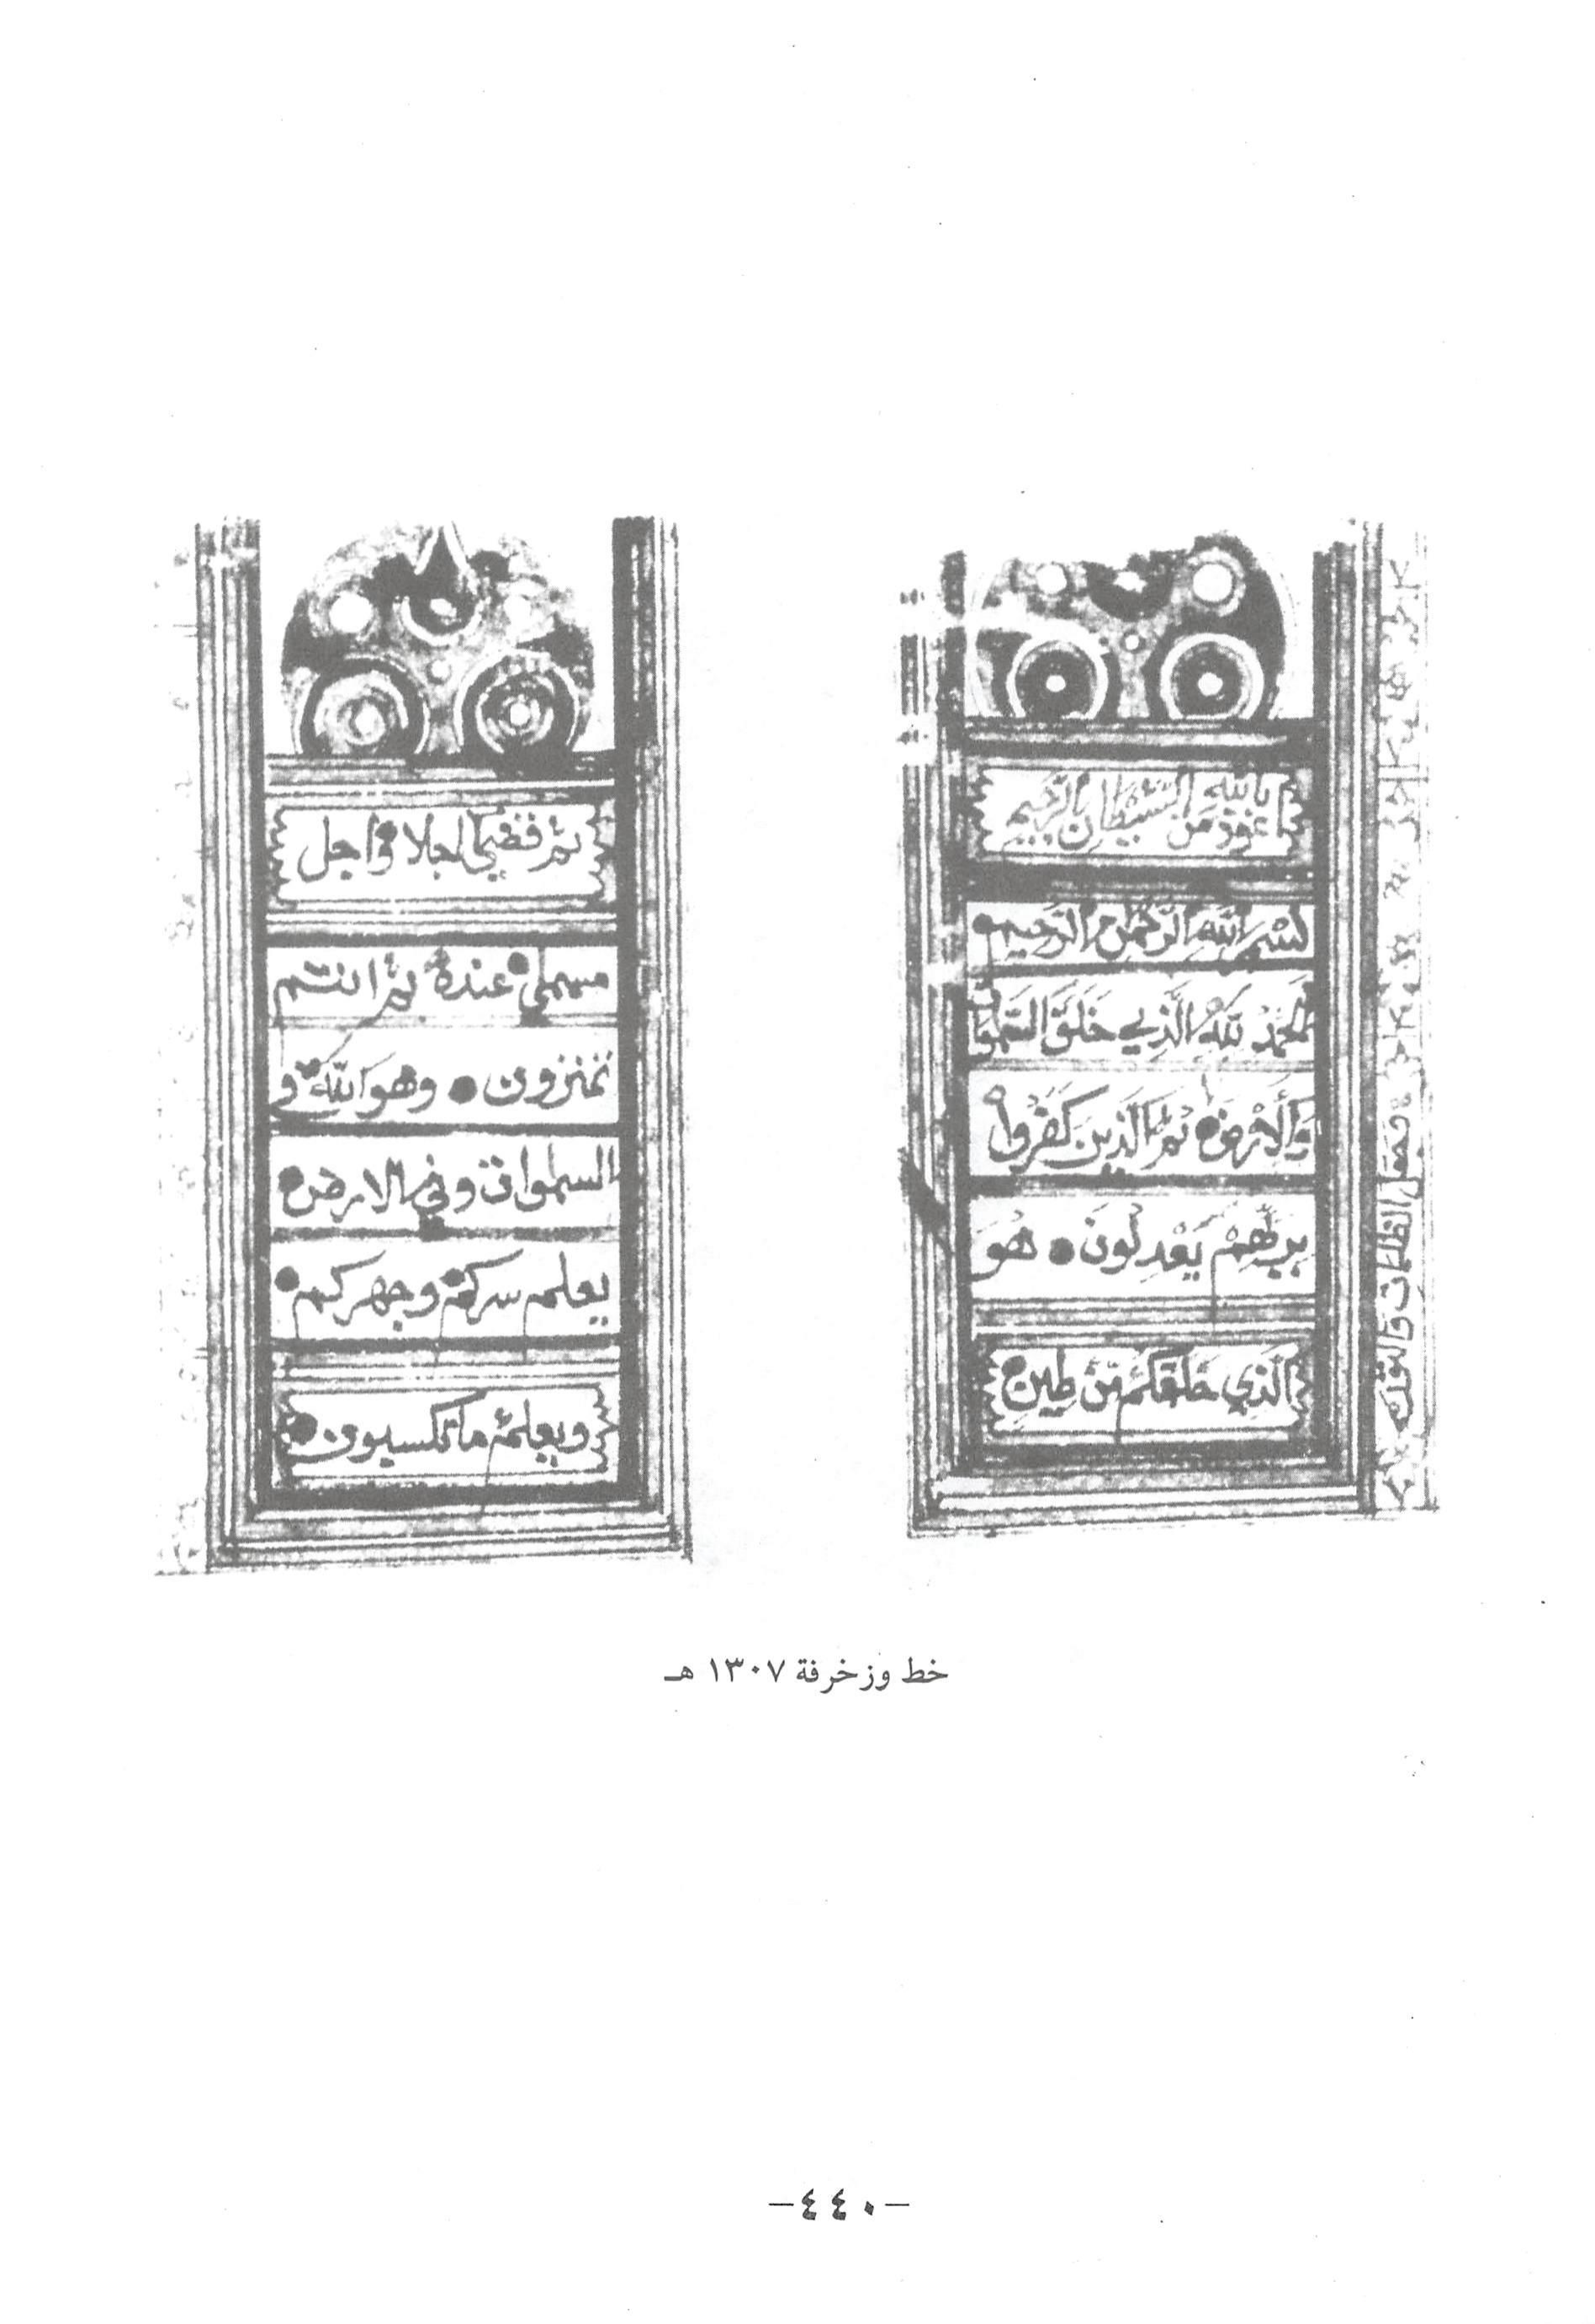 اعوذ بالله من الشيطان الرجيم
بسم الله الرحمن الرحيم
الحمد لله الذي خلق السموا
والارض ثم الذين كفروا
بربهم يعدلون هو
الذي خلقكم من طين
وجعل الظلمات والنور
ثم قضي اجلا واجل
مسمي عنده ثم انتم
تمترون وهو الله و
السموات وفي الارض
يعلم سركم وجهركم
ويعلم ما تكسبون
خط وزخرفة ١٣٠٧ هـ
-٤٤٠-